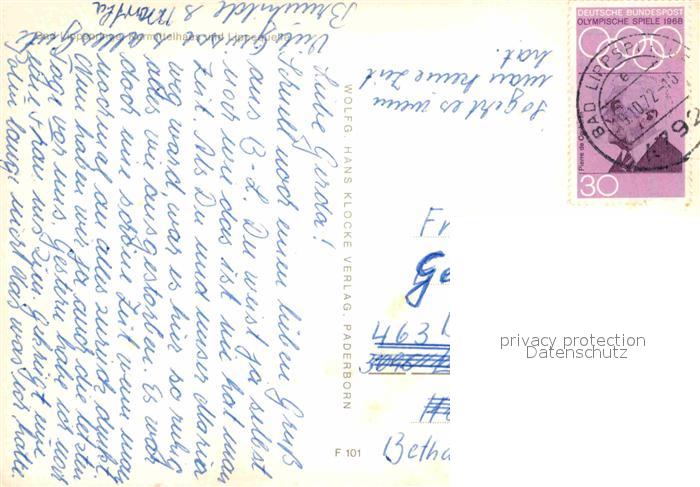 Bad Lippspringe, Kurmittelhaus und Lippequelle
Liebe Gerda!
Schnell noch einen lieben Gruß
aus B-L. Du weist ja selbst
noch wie das ist nie hat man
Zeit. Als Du und unser Maria
weg ward, war es hier so ruhig
alles wie ausgestorben. Es war
doch eine schöne Zeit wenn man
nochmal an alles zurück denkt.
Nun haben wir ja auch die letzten
Tage vor uns. Gestern habe ich noch
eine Frau aufs Zim. gekriegt
lange nicht das was ich habe.
alles
Viele
Brunhilde & Martha
So geht es wenn
man keine Zeit
hat.
WOLFG. HANS KLOCKE VERLAG, PADERBORN
F 101
DEUTSCHE BUNDESPOST
OLYMPISCHE SPIELE 1968
Pierre de
30
BAD LIPPSP
10.72-18
4792
Fr
Ge
463
Betha
privacy protection
Datenschutz